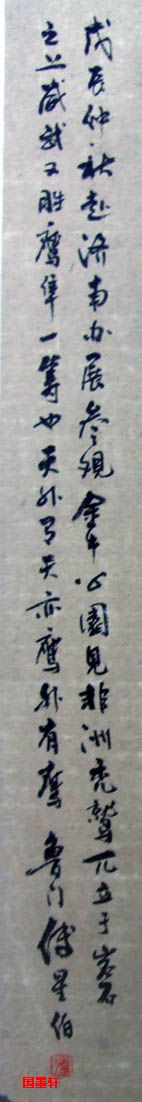 戊辰仲秋赴济南办展参观金牛公园见非洲秃鹫兀立于岩石
之上威武又胜鹰隼一筹也天外有天亦鹰外有鹰 鲁门傅星伯
国墨轩